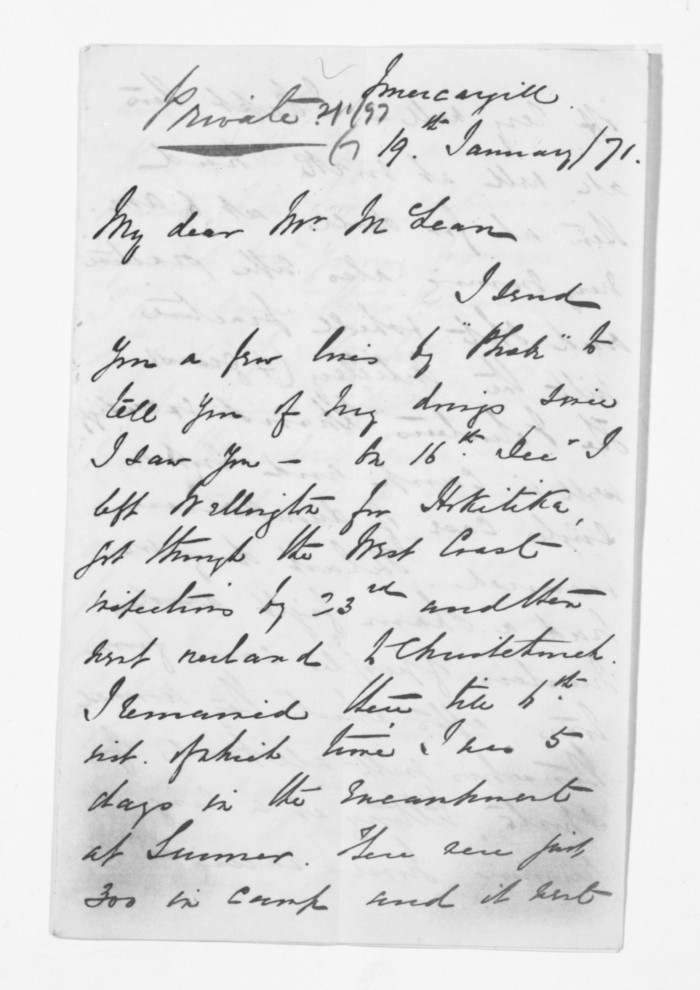 Private
Invercargill.
19.th January/71.
My dear Mr. McLean
I send
you a few lines by "Phoebe" to
tell you of my doings since
I saw you — On 16th. Decr I
left Wellington for Hokitika,
got through the West Coast
inspections by 23rd and then
went overland to Christchurch.
I remained there till 6th
inst. of which time I was 5
days in the Encampment
at Sumner. There were just
300 in camp and it went